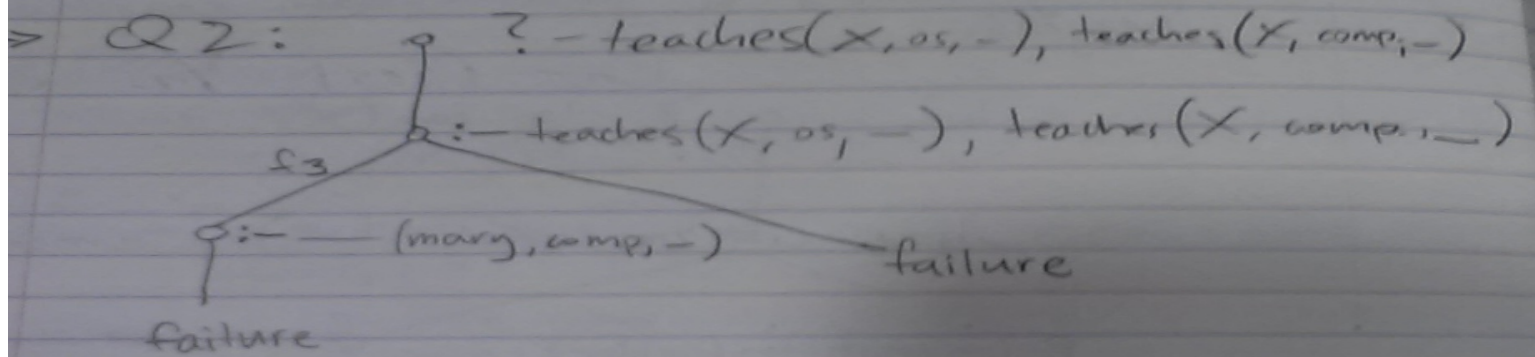 > Q2: ?- teaches(X, os, -), teaches(X, comp, -)
:- teaches(X, os, -), teaches(X, comp., _)
f3
:- —— (mary, comp, -)
failure
failure